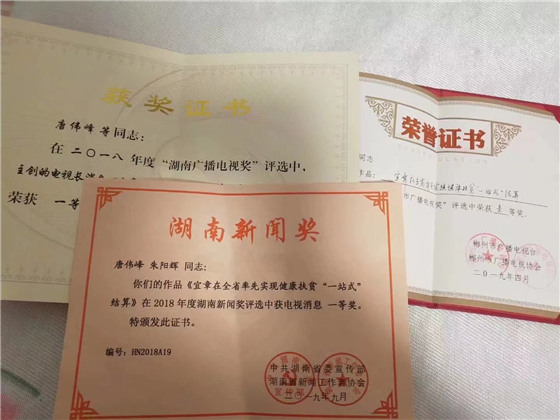 获奖证书
唐伟峰 等同志:
在 二〇一八 年度“湖南广播电视奖”评选中,
主创的电视长消
荣获 一等
荣誉证书
同志
作品:
广播电视奖”评选中荣获 壹 等奖。
郴州市广播电视台
郴州市广播电视协会
二〇一九年四月
湖南新闻奖
唐伟峰 朱阳辉 同志:
你们的作品《宜章在全省率先实现健康扶贫“一站式”
结算》在2018年度湖南新闻奖评选中获电视消息 一等奖。
特颁发此证书。
编号: HN2018A19
中共湖南省委宣传部
湖南省新闻工作者协会
二〇一九年九月